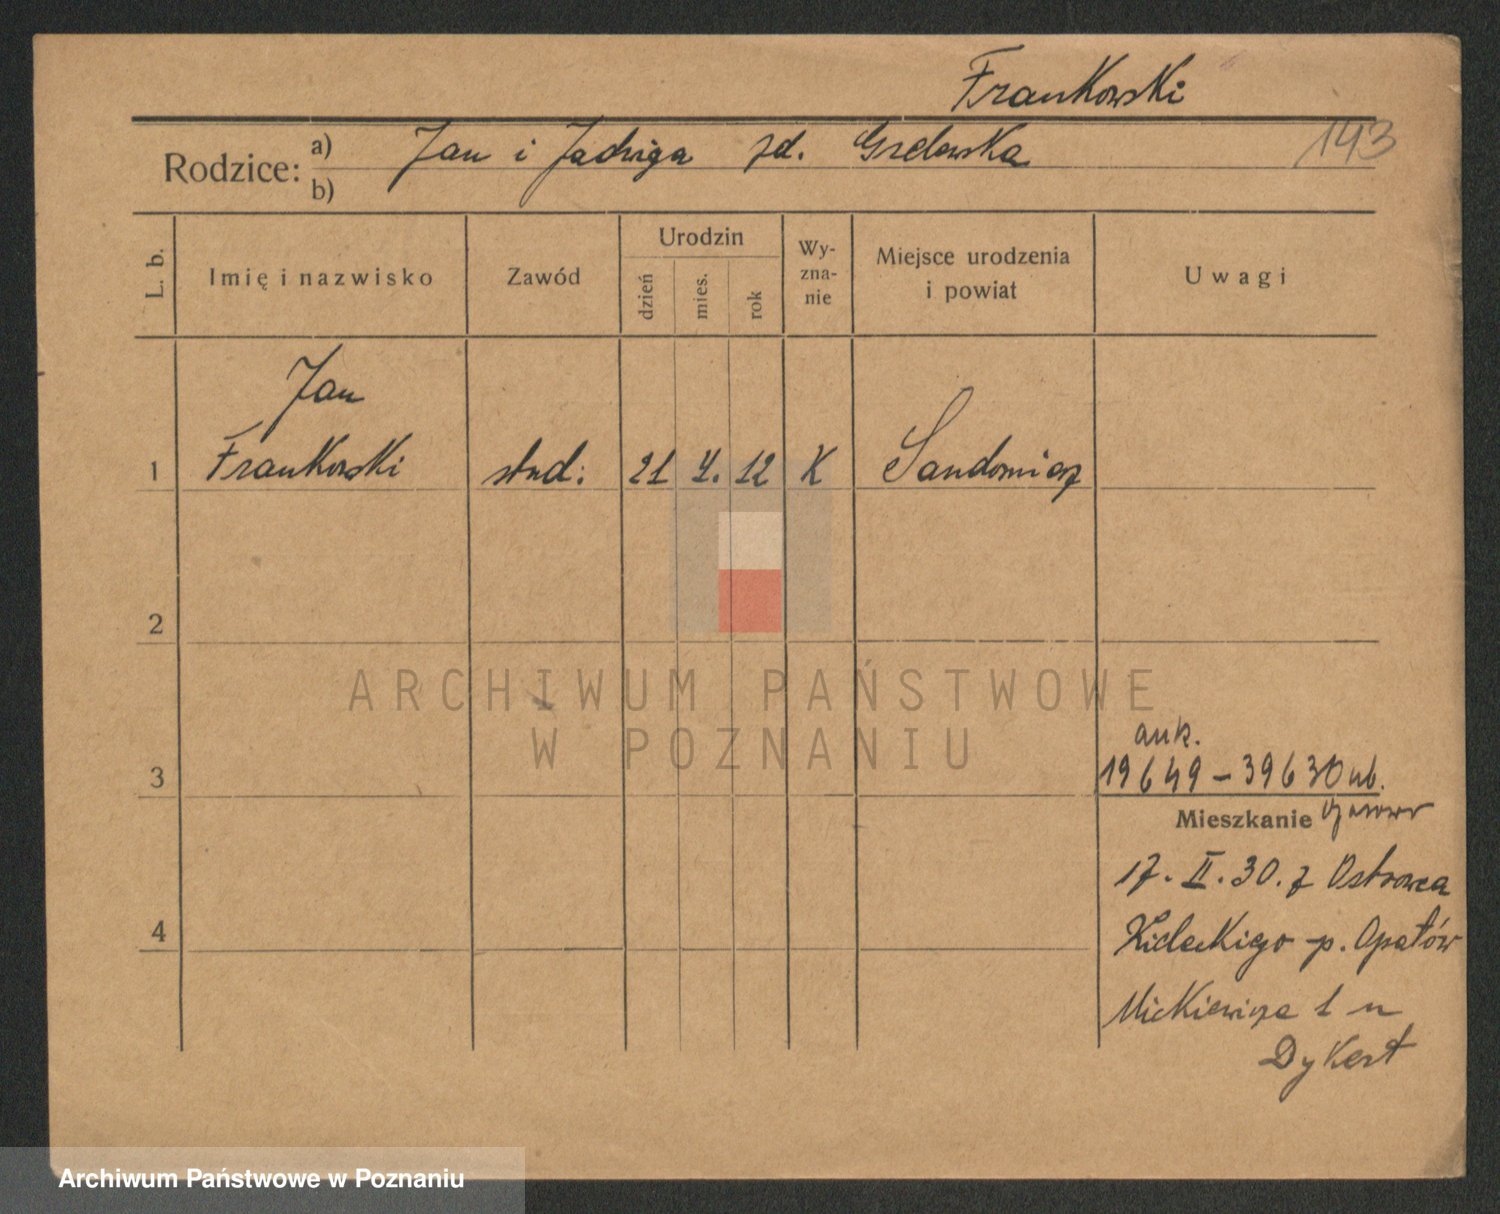 Frankowski
143
Rodzice: a) Jan i Jadwiga zd.
b)
L. b. Imię i nazwisko Zawód Urodzin dzień mies. rok Wyznanie Miejsce urodzenia i powiat Uwagi
Jan
1 Frankowski stud. 21 4. 12 K Sandomierz
2
ARCHIWUM PAŃSTWOWE
W POZNANIU
ank.
3 19649–39630
Mieszkanie
17. II. 30. z Ostrowca
4 p. Opatów
Mickiewicza 1 u
Dykert
Archiwum Państwowe w Poznaniu